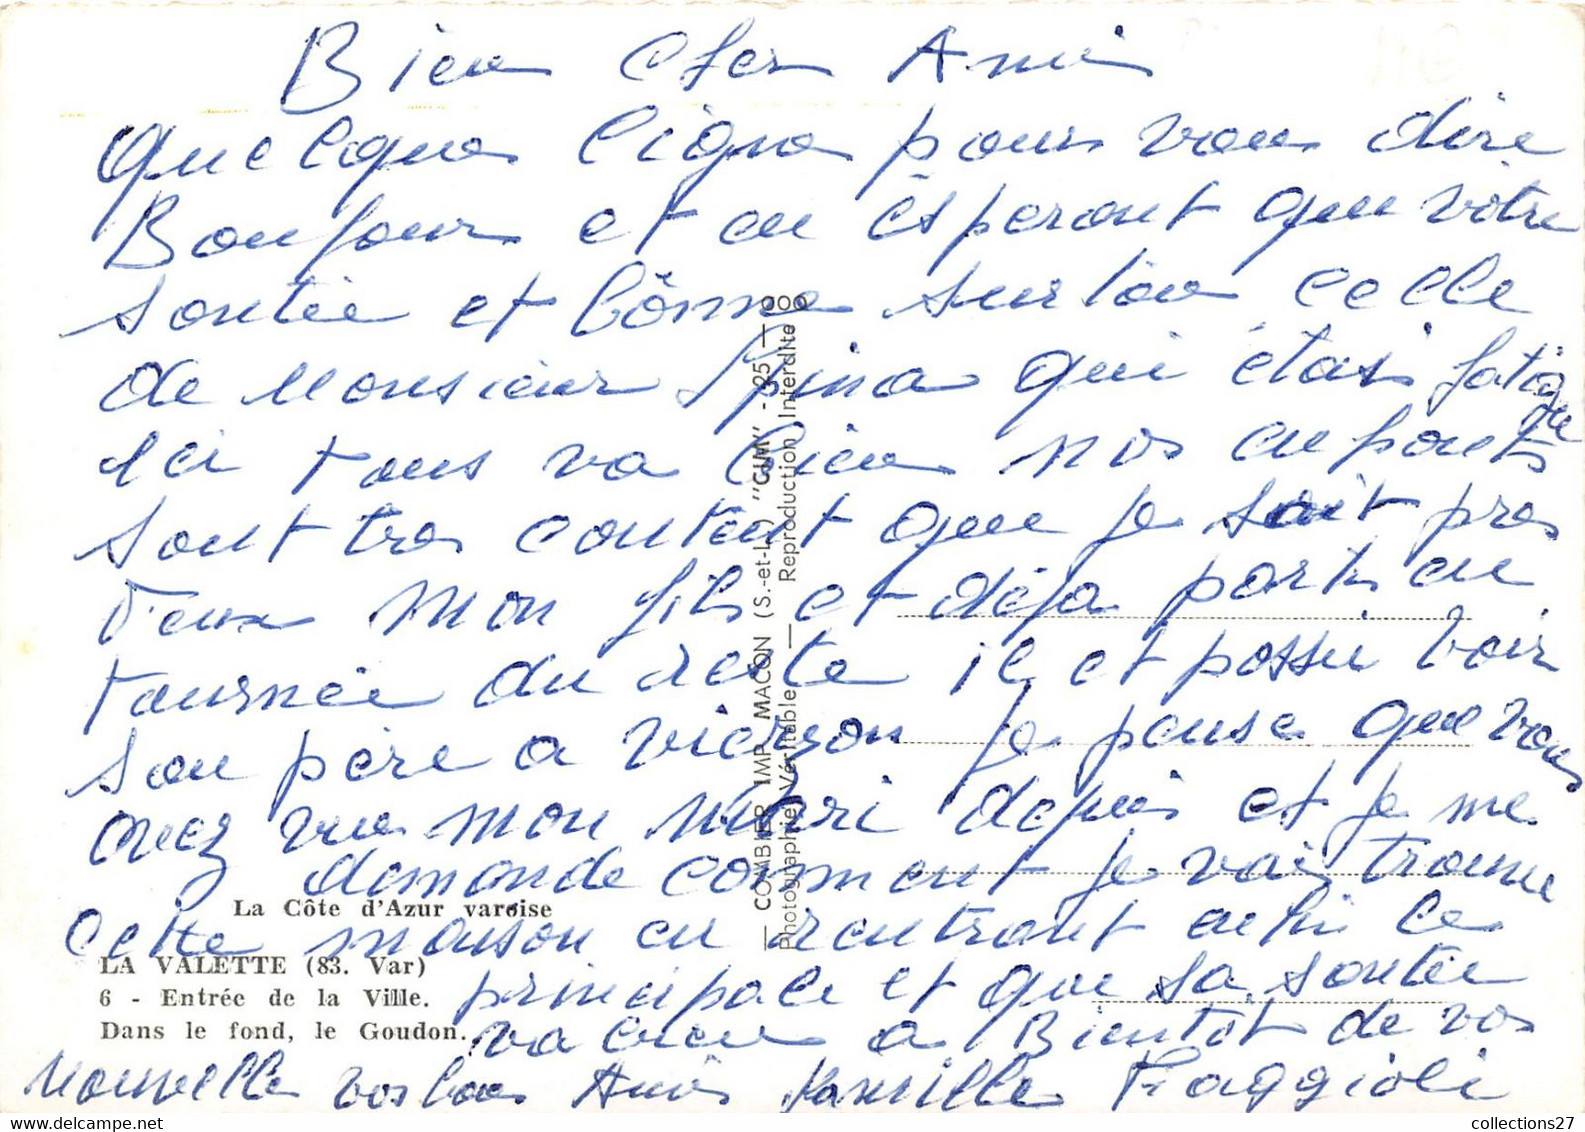 Bien cher Ami
quelque ligne pour vous dire
Bonjour et en ésperant que votre
santée et bônne surtou celle
de Monsieur Spina qui étais fatigue
Ici tous va bien nos enfants
sont tres content que je soit pres
d'eux mon fils et déja parti en
tournée du reste il et passée voir
son père a vierzon je pense que vous
avez vue mon Mari depuis et je me
demande comment je vais trouvee
cette maison en rentrant enfin le
principale et que sa santée
va bien a Bientot de vos
nouvelle vos bon Amis famille Fraggioli
La Côte d'Azur varoise
LA VALETTE (83. Var)
6 - Entrée de la Ville.
Dans le fond, le Goudon.
COMBIER IMP. MACON (S.-et-L.) "CIM" - 325 -
Photographie Véritable — Reproduction Interdite
collections27